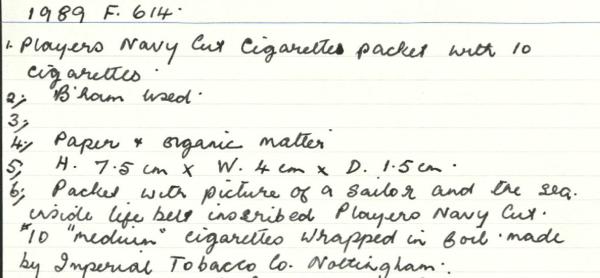 1989 F. 614.
1. Players Navy Cut Cigarettes packet with 10
cigarettes.
2; B'ham used.
3;
4; Paper & organic matter
5, H. 7.5 cm x W. 4 cm x D. 1.5 cm.
6; Packet with picture of a sailor and the sea.
inside life belt inscribed Players Navy Cut.
"10 "medium" cigarettes wrapped in foil. made
by Imperial Tobacco Co. Nottingham.